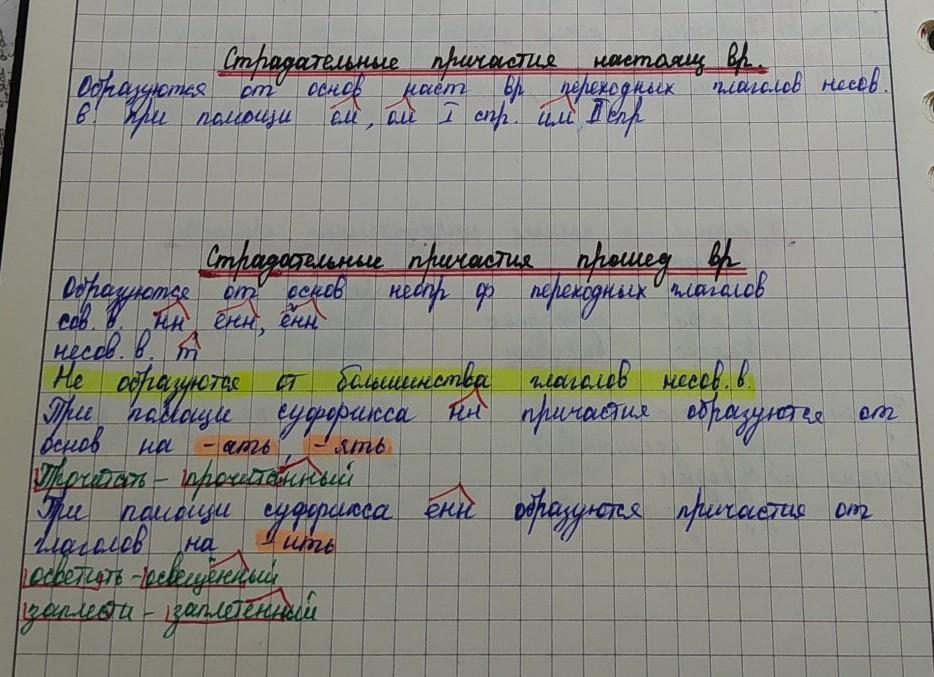 Страдательные причастия настоящ вр.
Образуются от основ наст вр переходных глаголов несов.
в. при помощи ем, ом I спр. им II спр
Страдательные причастия прошед вр
Образуются от основ неопр ф переходных глаголов
сов. в. нн енн, ённ
несов. в. т
Не образуются от большинства глаголов несов. в.
При помощи суффикса нн причастия образуются от
основ на -ать, -ять
Прочитать - прочитанный
При помощи суффикса ённ образуются причастия от
глаголов на -ить
осветить - освещённый
заплести - заплетённый